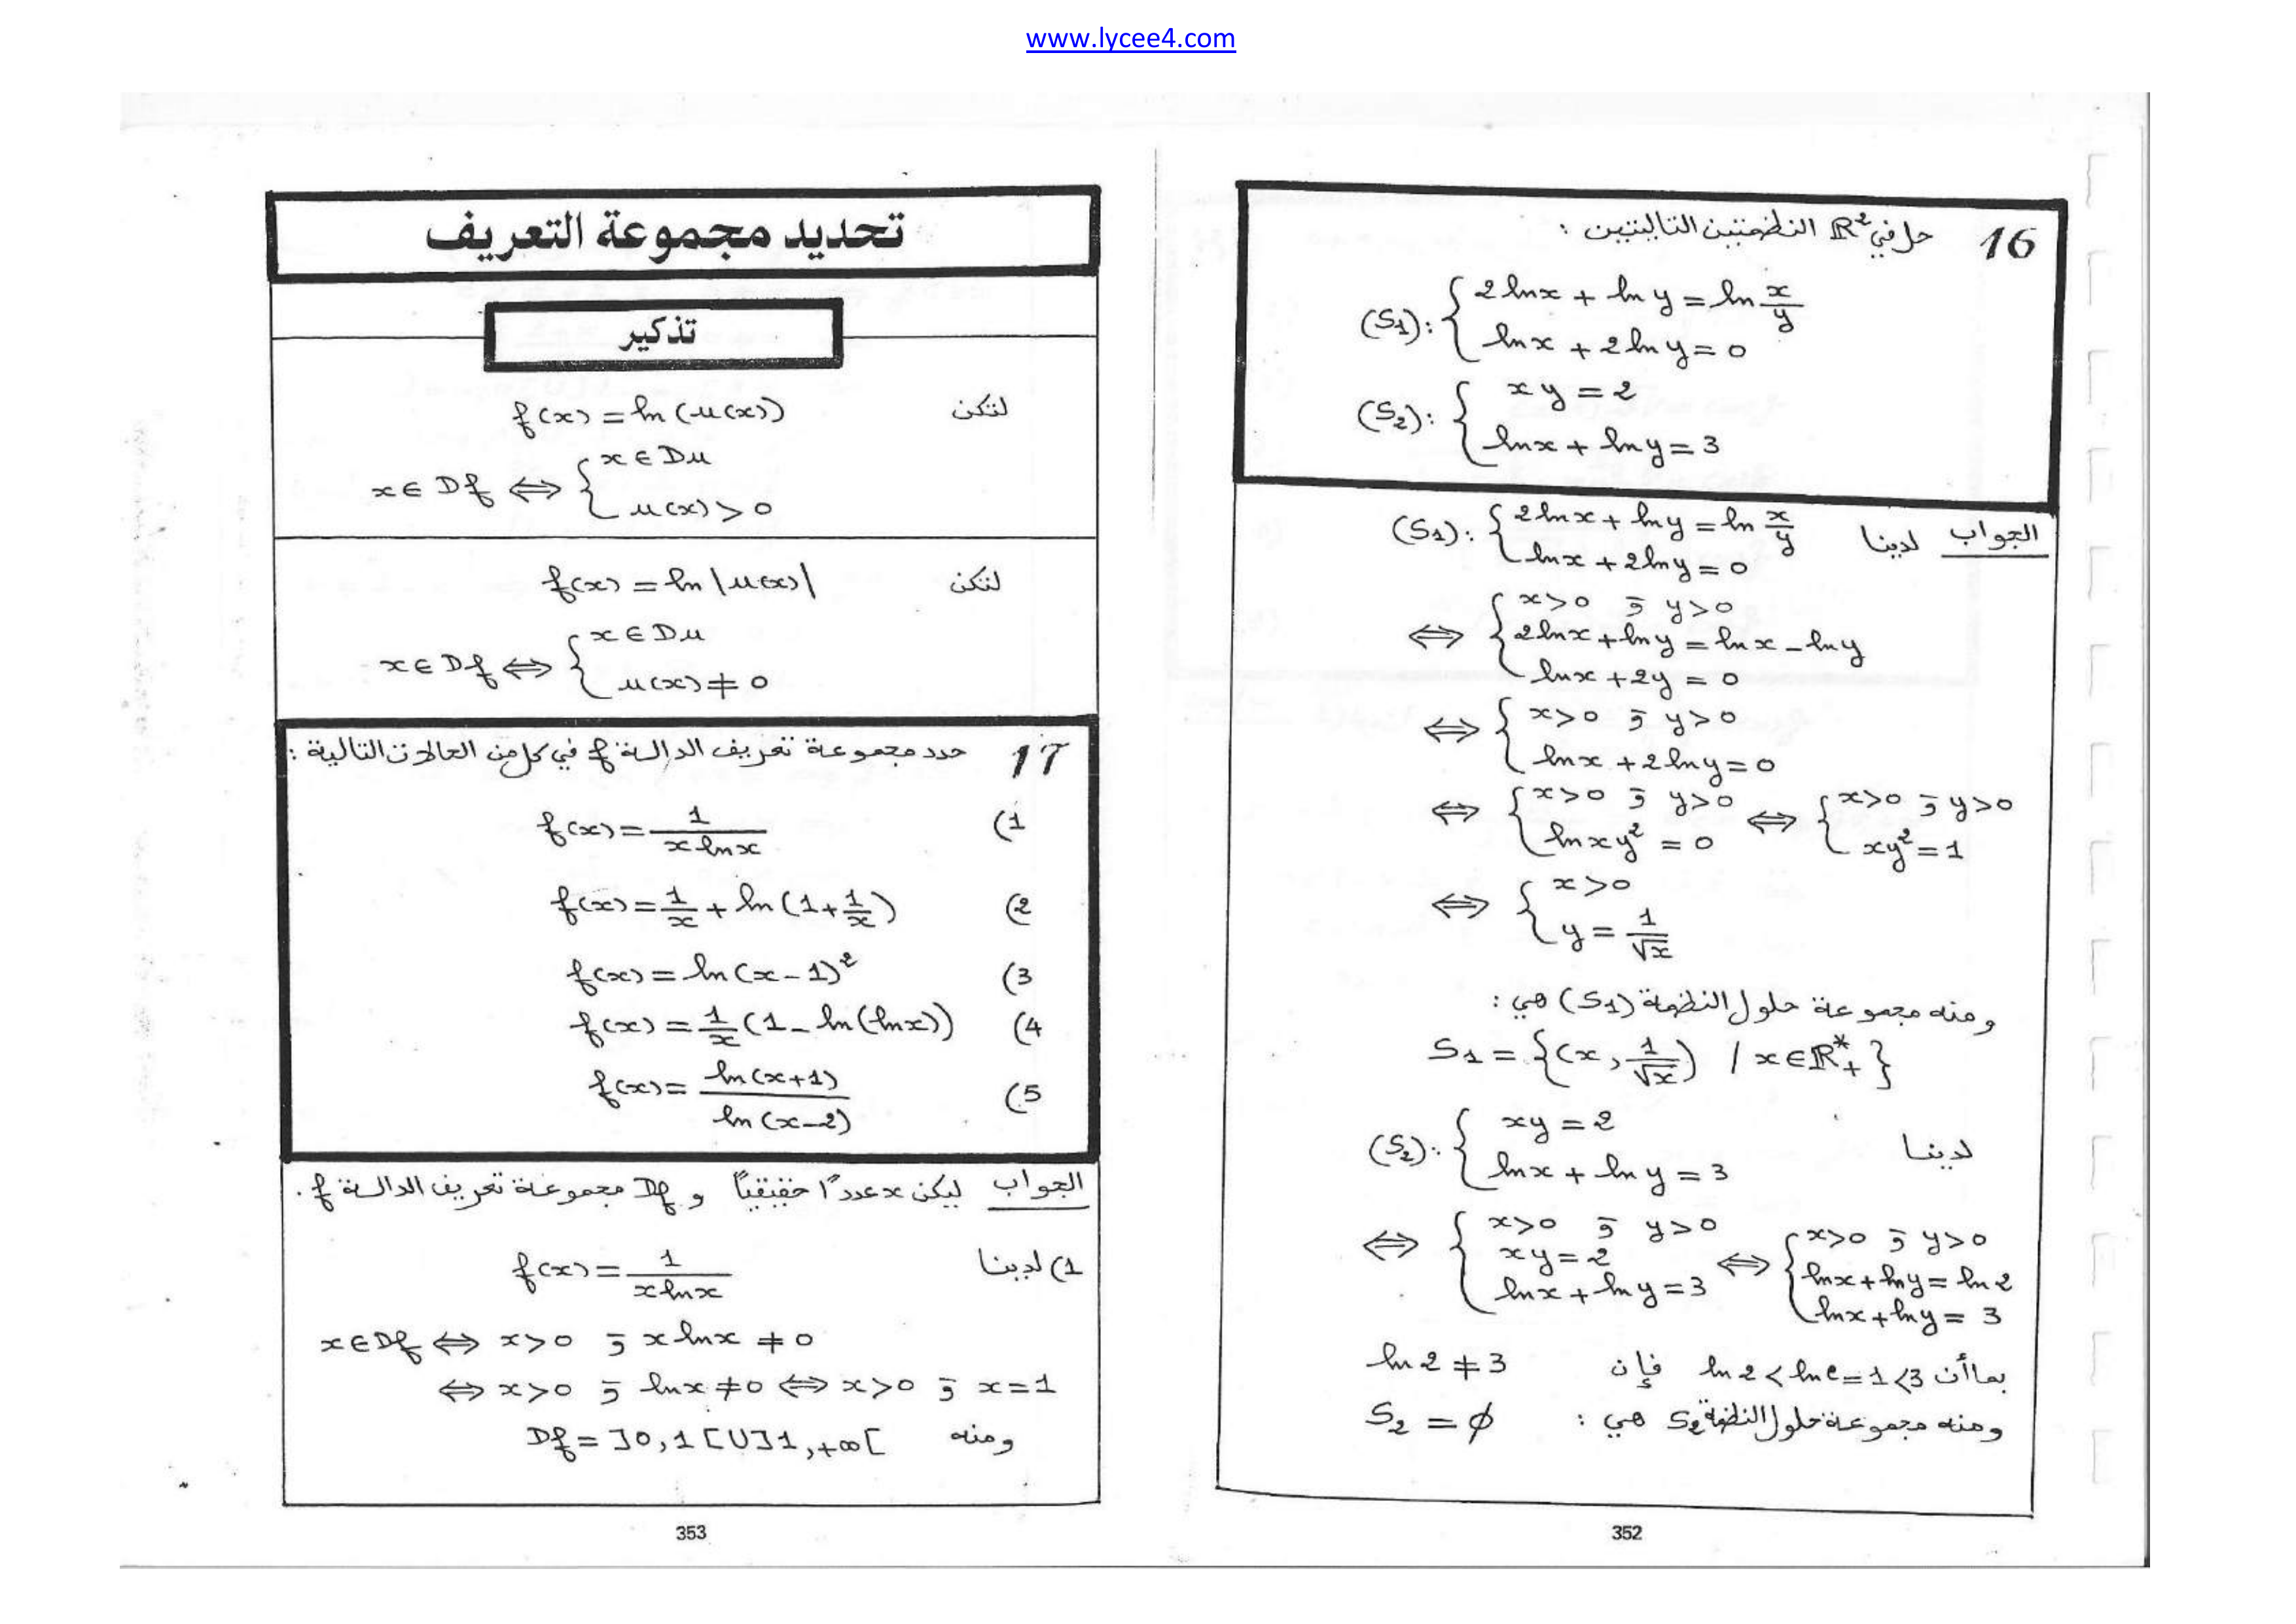 www.lycee4.com
16 حل في ℝ² النظمتين التاليتين :
(S1): { 2lnx + lny = ln x/y
lnx + 2lny = 0
(S2): { xy = 2
lnx + lny = 3
الجواب لدينا (S1): { 2lnx + lny = ln x/y
lnx + 2lny = 0
⇔ { x>0 و y>0
2lnx + lny = lnx - lny
lnx + 2y = 0
⇔ { x>0 و y>0
lnx + 2lny = 0
⇔ { x>0 و y>0 ⇔ { x>0 و y>0
lnxy² = 0 xy² = 1
⇔ { x>0
y = 1/√x
ومنه مجموعة حلول النظمة (S1) هي :
S1 = {(x, 1/√x) / x∈ℝ*+}
لدينا (S2): { xy = 2
lnx + lny = 3
⇔ { x>0 و y>0 ⇔ { x>0 و y>0
xy = 2 lnx + lny = ln2
lnx + lny = 3 lnx + lny = 3
بما أن ln2 < lne = 1 < 3 فإن ln2 ≠ 3
ومنه مجموعة حلول النظمة S2 هي : S2 = ∅
352
تحديد مجموعة التعريف
تذكير
لتكن f(x) = ln(u(x))
x∈Df ⇔ { x∈Du
u(x) > 0
لتكن f(x) = ln|u(x)|
x∈Df ⇔ { x∈Du
u(x) ≠ 0
17 حدد مجموعة تعريف الدالة f في كل من الحالات التالية :
(1 f(x) = 1/(x lnx)
(2 f(x) = 1/x + ln(1 + 1/x)
(3 f(x) = ln(x-1)²
(4 f(x) = 1/x (1 - ln(lnx))
(5 f(x) = ln(x+1)/ln(x-2)
الجواب ليكن x عددًا حقيقيًا و Df مجموعة تعريف الدالة f.
(1 لدينا f(x) = 1/(x lnx)
x∈Df ⇔ x>0 و x lnx ≠ 0
⇔ x>0 و lnx ≠ 0 ⇔ x>0 و x=1
ومنه Df = ]0,1[ U ]1,+∞[
353